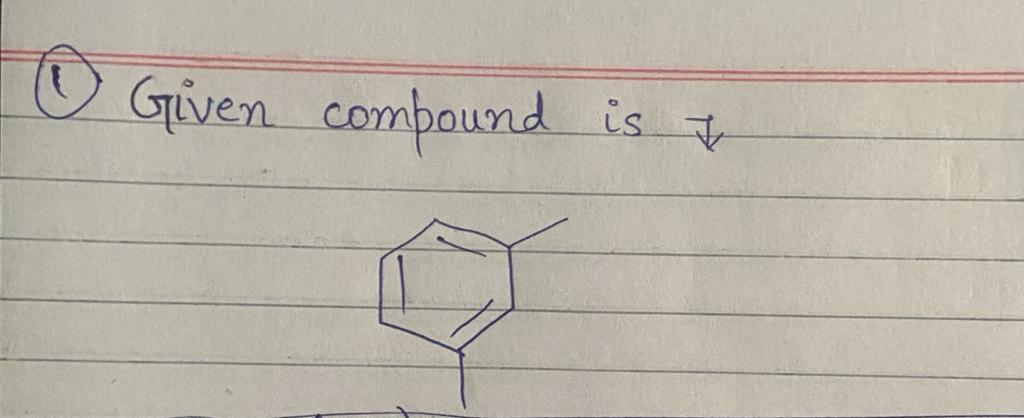 ① Given compound is ↓